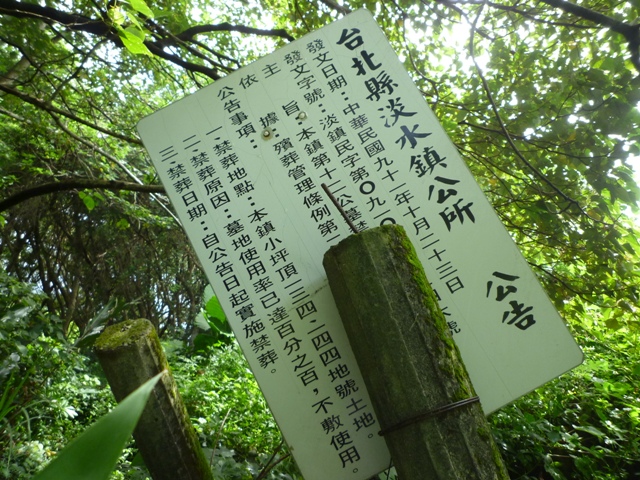 台北縣淡水鎮公所 公告
發文日期：中華民國九十一年十月二十三日
發文字號：淡鎮民字第〇九一〇
主 旨：本鎮第十二公墓禁
依 據：殯葬管理條例第二
公告事項：
一、禁葬地點：本鎮小坪頂一三四、二四四地號土地。
二、禁葬原因：墓地使用率已達百分之百，不敷使用。
三、禁葬日期：自公告日起實施禁葬。